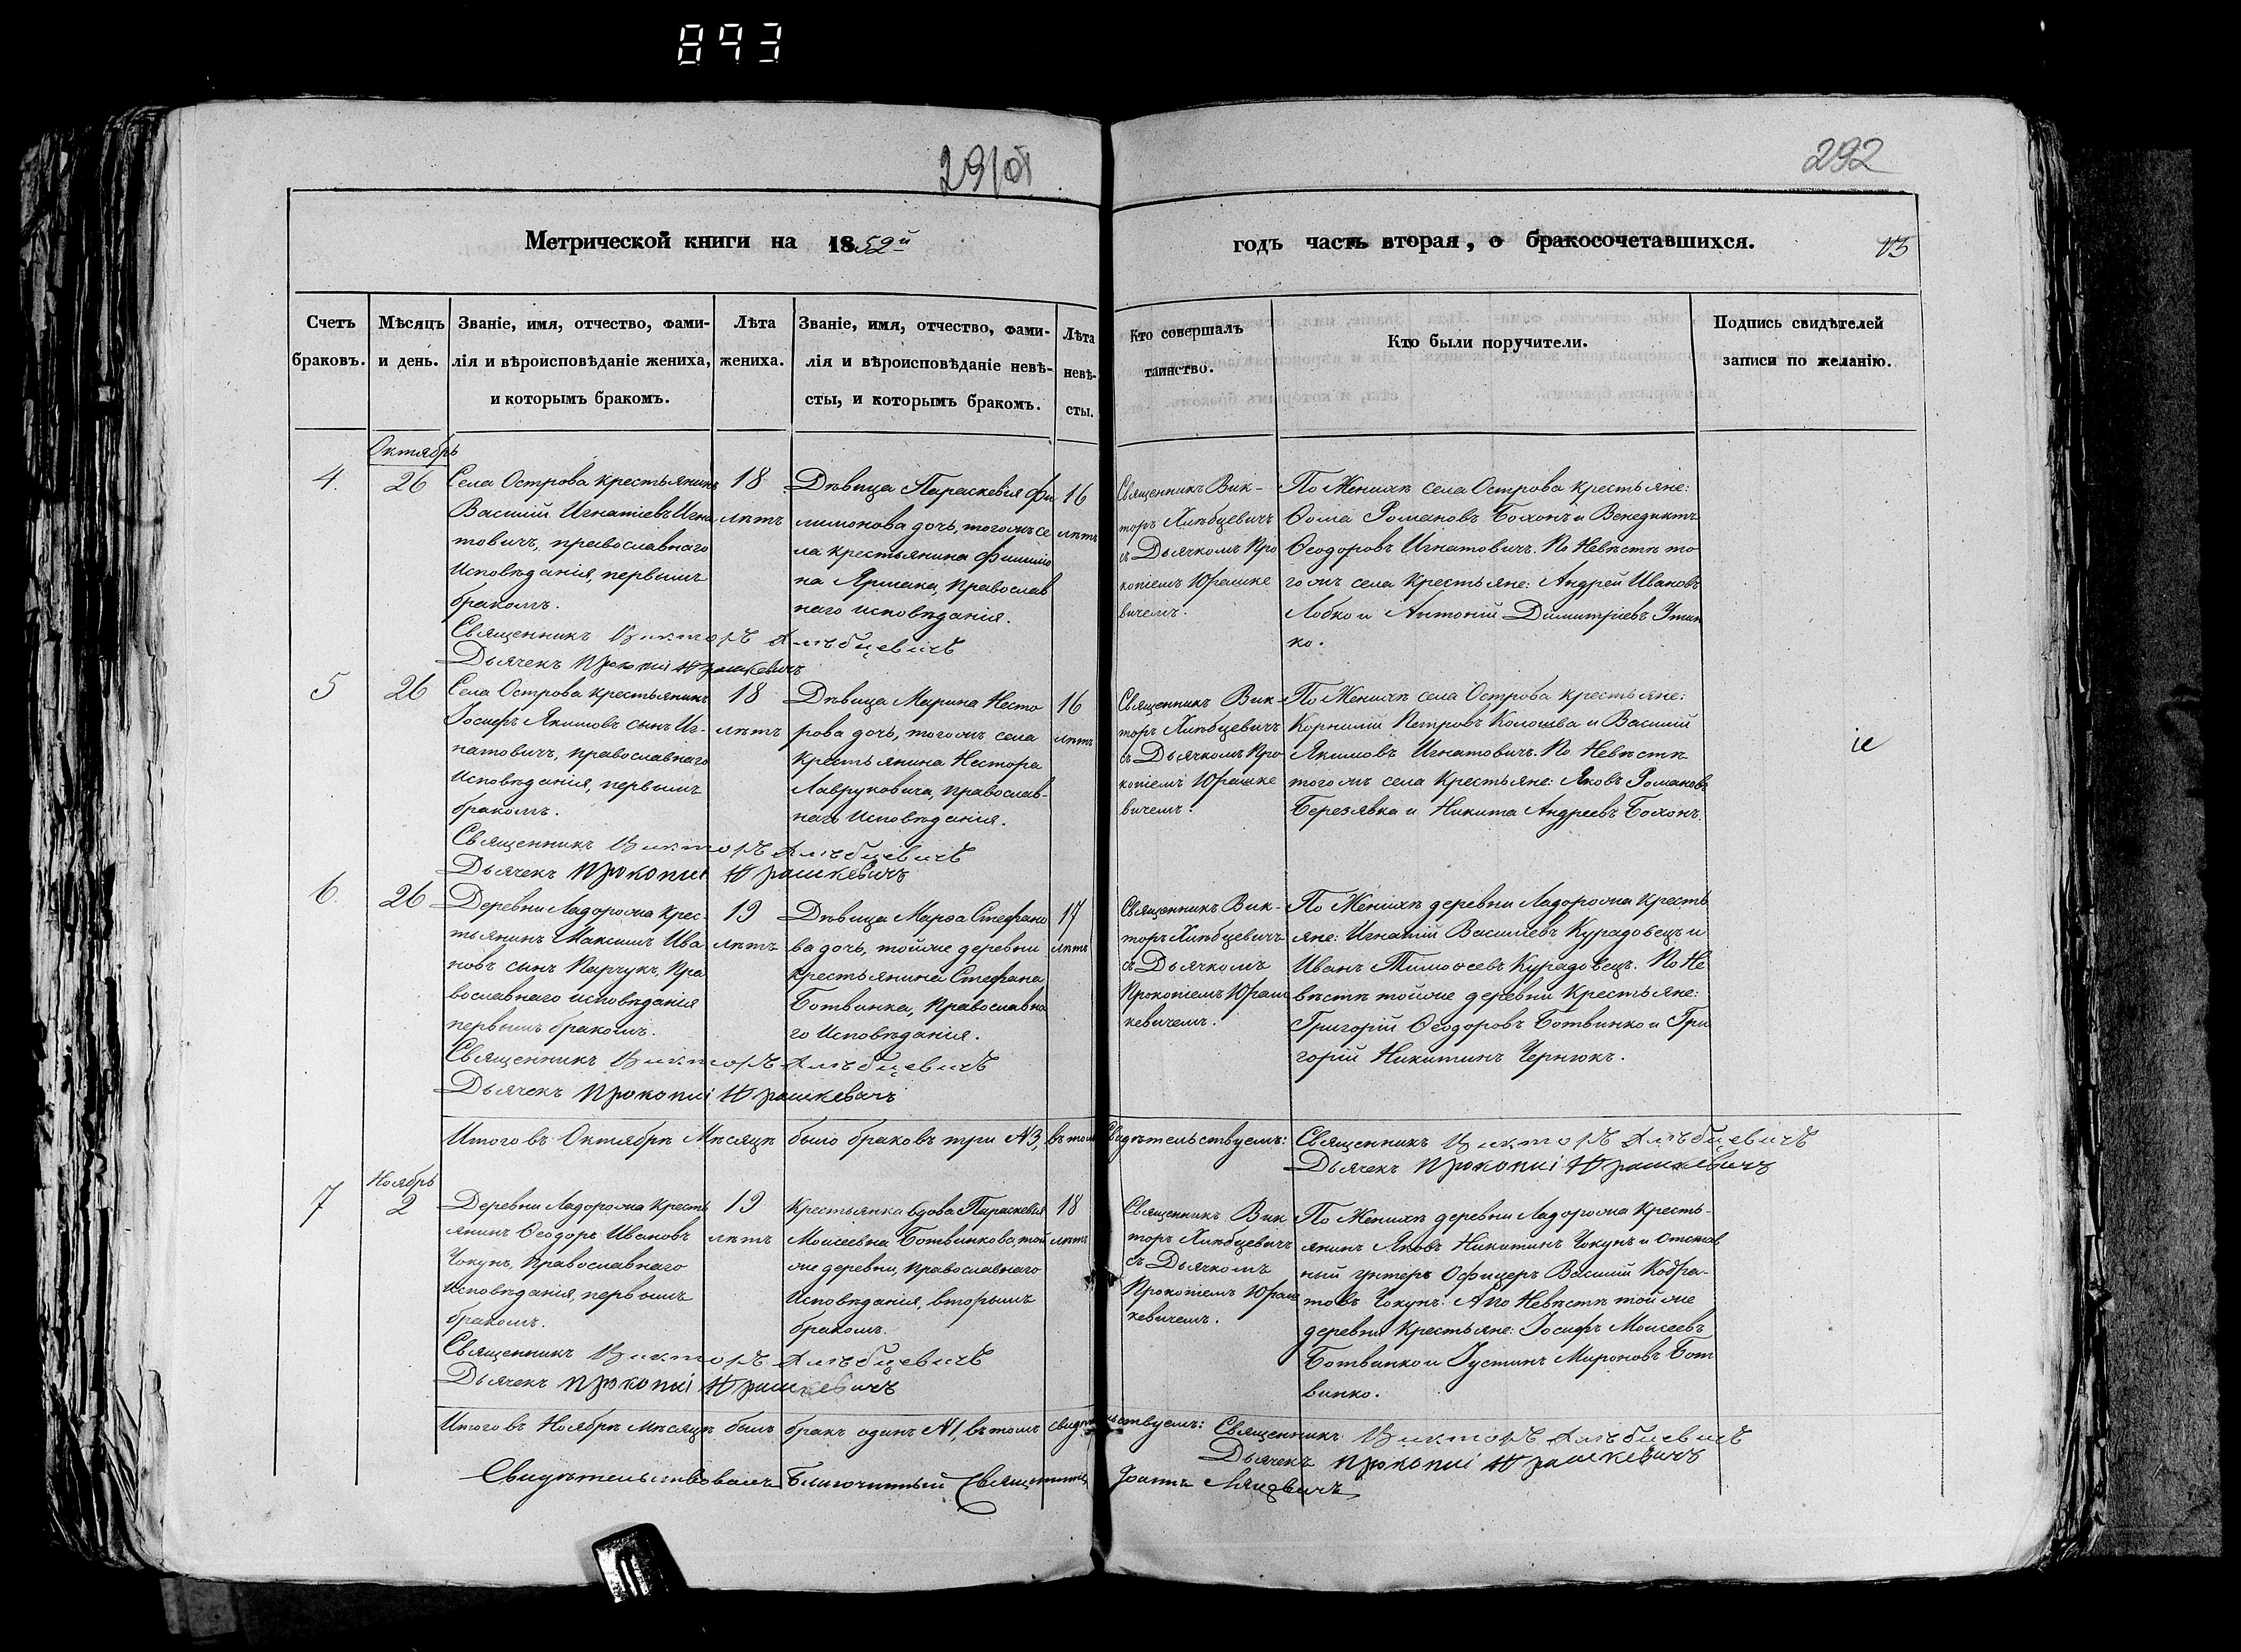 893
291об
292
Метрической книги на 1852й
годъ часть вторая, о бракосочетавшихся.
13
Счетъ браковъ.
Мѣсяцъ и день.
Званіе, имя, отчество, фами-
лія и вѣроисповѣданіе жениха,
и которымъ бракомъ.
Лѣта
жениха.
Званіе, имя, отчество, фами-
лія и вѣроисповѣданіе невѣ-
сты, и которымъ бракомъ.
Лѣта
невѣ-
сты.
Кто совершалъ
таинство.
Кто были поручители.
Подпись свидѣтелей
записи по желанію.
Октябрь
4.
26
Села Острова крестьянинъ
Василій Игнатіевъ Игна
товичъ, православнаго
исповѣданія, первымъ
бракомъ.
18
лѣтъ
Дѣвица Параскевія Фи
лимонова дочь, тогожъ се
ла крестьянина Филимо
на Ярмака, Православ
наго исповѣданія.
16
лѣтъ
Священникъ Вик-
торъ Хлѣбцевичъ
съ Дьячкомъ Про
копіемъ Юрашке
вичемъ.
По Женихѣ села Острова крестьяне:
Ѳома Романовъ Бохонъ и Венедиктъ
Ѳеодоровъ Игнатовичъ. По Невѣстѣ то
гожъ села Крестьяне: Андрей Ивановъ
Лобко и Антоній Димитріевъ
ко.
Священникъ Викторъ Хлѣбцевичъ
Дьячекъ Прокопій Юрашкевичъ
5
26
Села Острова крестьянинъ
Іосифъ Якимовъ сынъ Иг-
натовичъ, православнаго
исповѣданія, первымъ
бракомъ.
18
лѣтъ
Дѣвица Марина Несто
рова дочь, тогожъ села
Крестьянина Нестора
Лавруковича, православ-
наго Исповѣданія.
16
лѣтъ
Священникъ Вик-
торъ Хлѣбцевичъ
съ Дьячкомъ Про
копіемъ Юрашке
вичемъ.
По Женихѣ села Острова крестьяне:
Корнилій Петровъ и Василій
Якимовъ Игнатовичъ. По Невѣстѣ
тогожъ села Крестьяне: Яковъ Романовъ
Березявка и Никита Андреевъ Бохонъ.
Священникъ Викторъ Хлѣбцевичъ
Дьячекъ Прокопій Юрашкевичъ
6.
26
Деревни Ладорожа Крес-
тьянинъ Максимъ Ива
новъ сынъ Парчукъ, Пра
вославнаго исповѣданія
первымъ бракомъ.
19
лѣтъ
Дѣвица Марѳа Стефано
ва дочь, тойже деревни
крестьянина Стефана
Ботвинка, Православна
го Исповѣданія.
17
лѣтъ
Священникъ Вик-
торъ Хлѣбцевичъ
съ Дьячкомъ
Прокопіемъ Юраш
кевичемъ.
По Женихѣ деревни Ладорожа Кресть
яне: Игнатій Василіевъ Курадовецъ и
Иванъ Тимоѳеевъ Курадовецъ. По Не
вѣстѣ тойже деревни Крестьяне:
Григорій Ѳеодоровъ Ботвинко и Гри
горій Никитинъ Чернюкъ.
Священникъ Викторъ Хлѣбцевичъ
Дьячекъ Прокопій Юрашкевичъ
Итого въ Октябрѣ Мѣсяцѣ было браковъ три №3, въ томъ Свидѣтельствуемъ: Священникъ Викторъ Хлѣбцевичъ
Дьячекъ Прокопій Юрашкевичъ
Ноябрь
7
2
Деревни Ладорожа Кресть
янинъ Ѳеодоръ Ивановъ
Чокунъ, Православнаго
исповѣданія, первымъ
бракомъ.
19
лѣтъ
Крестьянка вдова Параскевія
Моисеевна Ботвинкова, той
же деревни, православнаго
Исповѣданія, вторымъ
бракомъ.
18
лѣтъ
Священникъ Вик
торъ Хлѣбцевичъ
съ Дьячкомъ
Прокопіемъ Юраш
кевичемъ.
По Женихѣ деревни Ладорожа Кресть-
янинъ Яковъ Никитинъ Чокунъ и Отстав
ный унтеръ Офицеръ Василій Кодра-
товъ Чокунъ. А по Невѣстѣ той же
деревни Крестьяне: Іосифъ Моисеевъ
Ботвинко и Іустинъ Мироновъ Бот
винко.
Священникъ Викторъ Хлѣбцевичъ
Дьячекъ Прокопій Юрашкевичъ
Итого въ Ноябрѣ Мѣсяцѣ былъ бракъ одинъ №1, въ томъ свидѣтельствуемъ: Священникъ Викторъ Хлѣбцевичъ
Дьячекъ Прокопій Юрашкевичъ
Свидѣтельствовалъ Благочинный Священникъ Іоаннъ